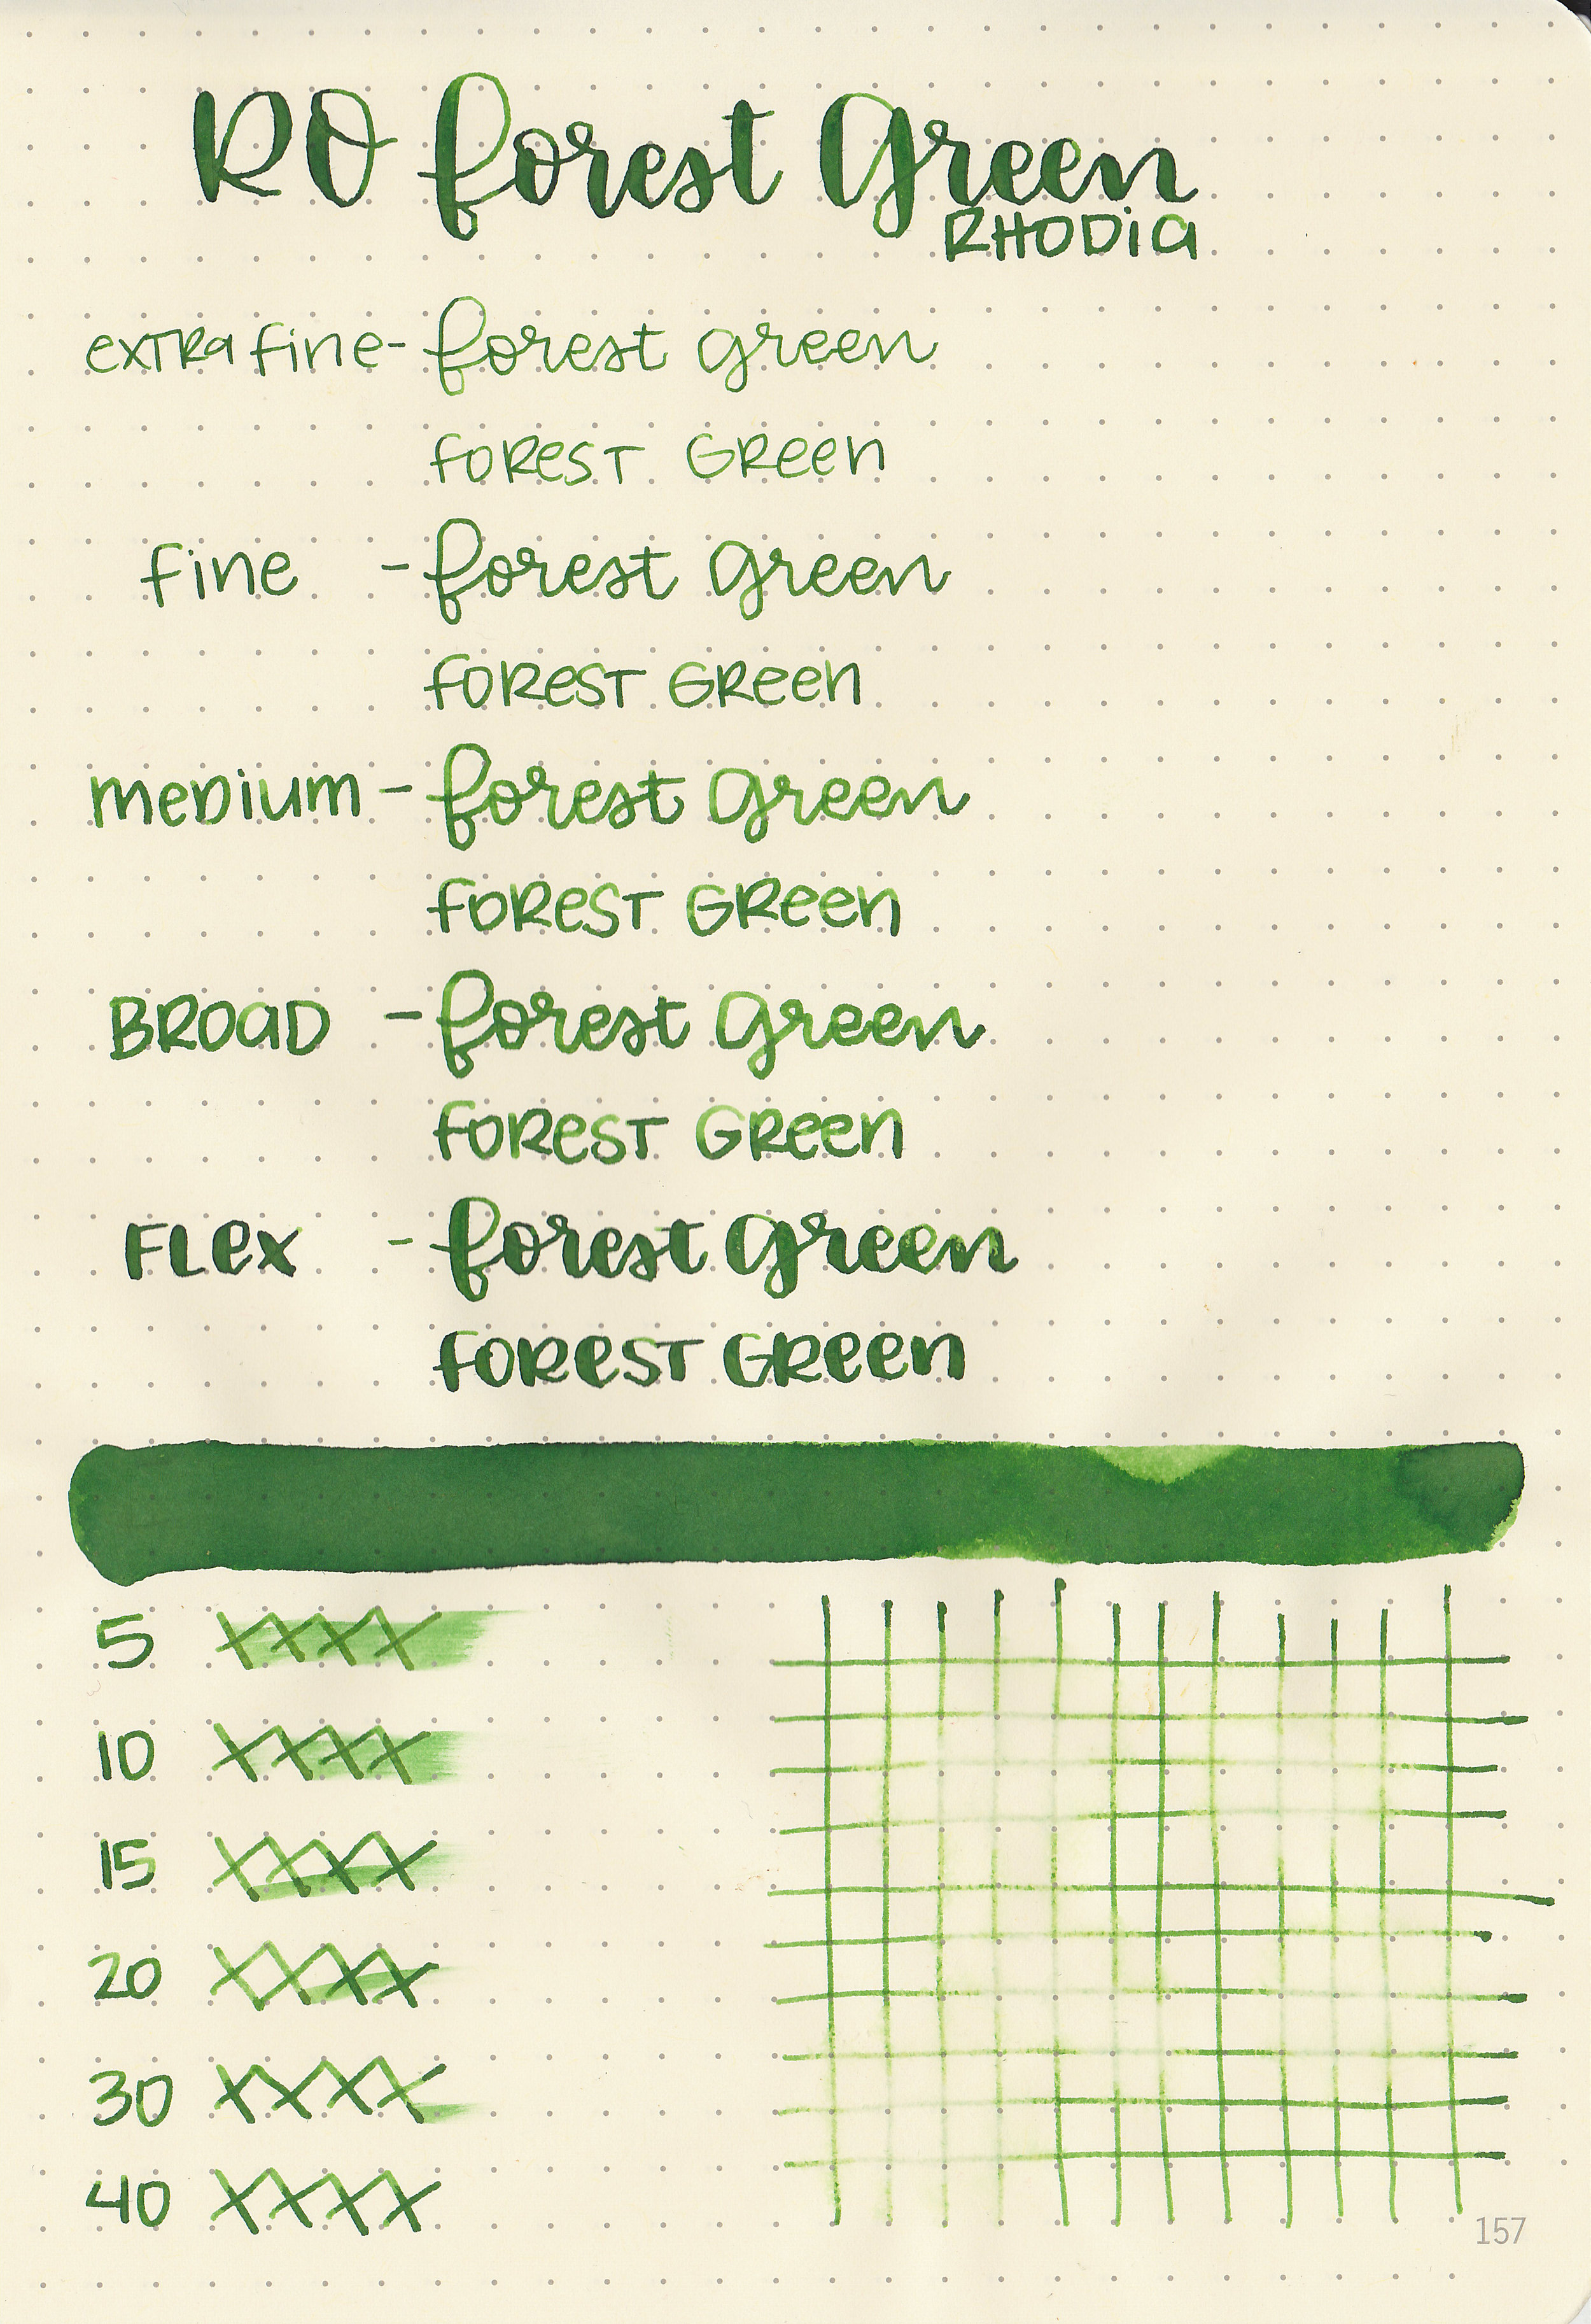 RO forest Green
RHODIA
extra fine - forest green
FOREST GREEN
fine - forest green
FOREST GREEN
MEDIUM - forest green
FOREST GREEN
BROAD - forest green
FOREST GREEN
FLEX - forest green
FOREST GREEN
5 XXXX
10 XXXX
15 XXXX
20 XXXX
30 XXXX
40 XXXX
157